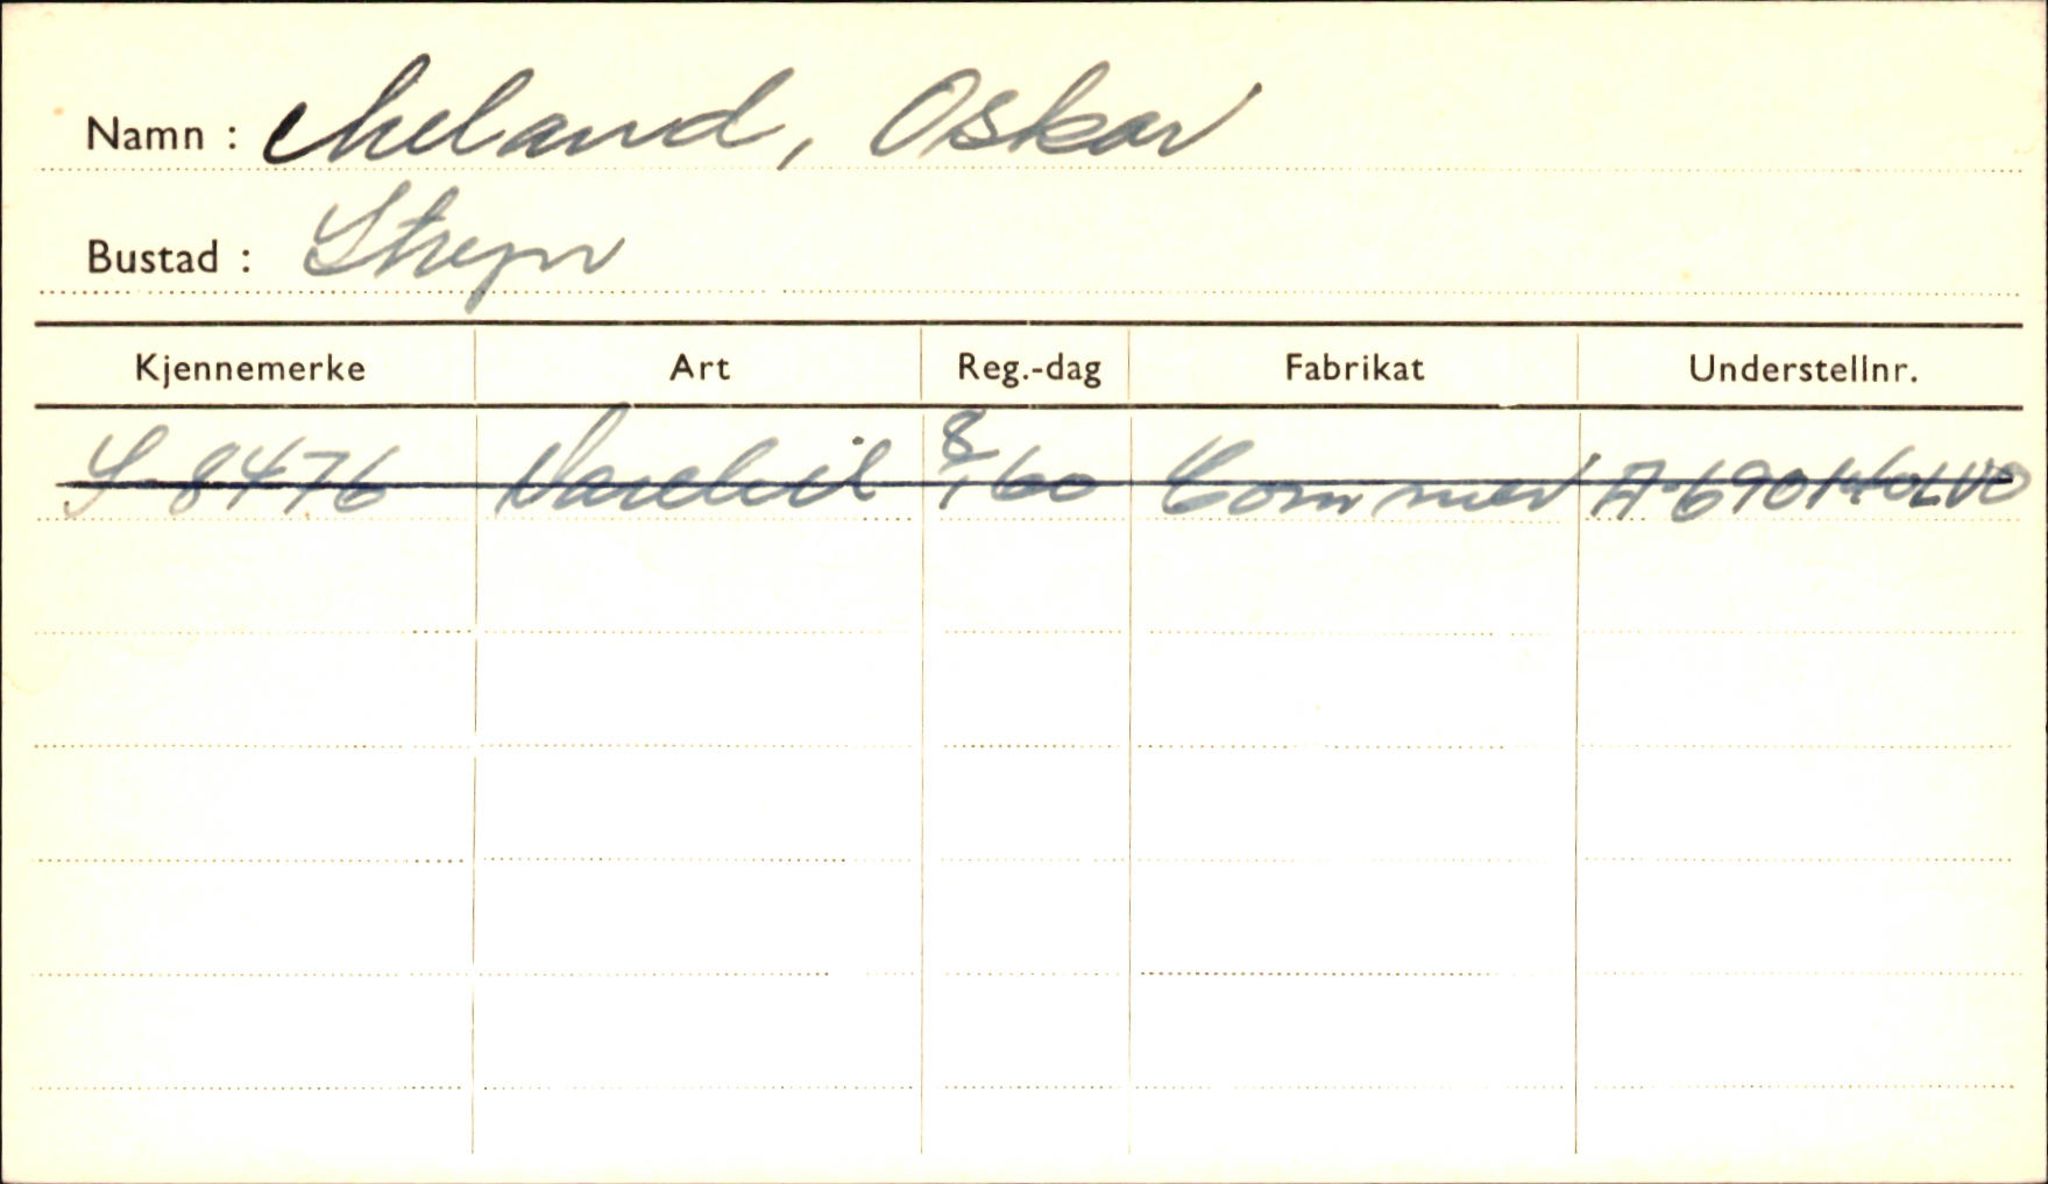 Namn : Meland, Oskar
Bustad : Stryn
Kjennemerke Art Reg.-dag Fabrikat Understellnr.
S-8476 Varebil 8/1 60 Commer